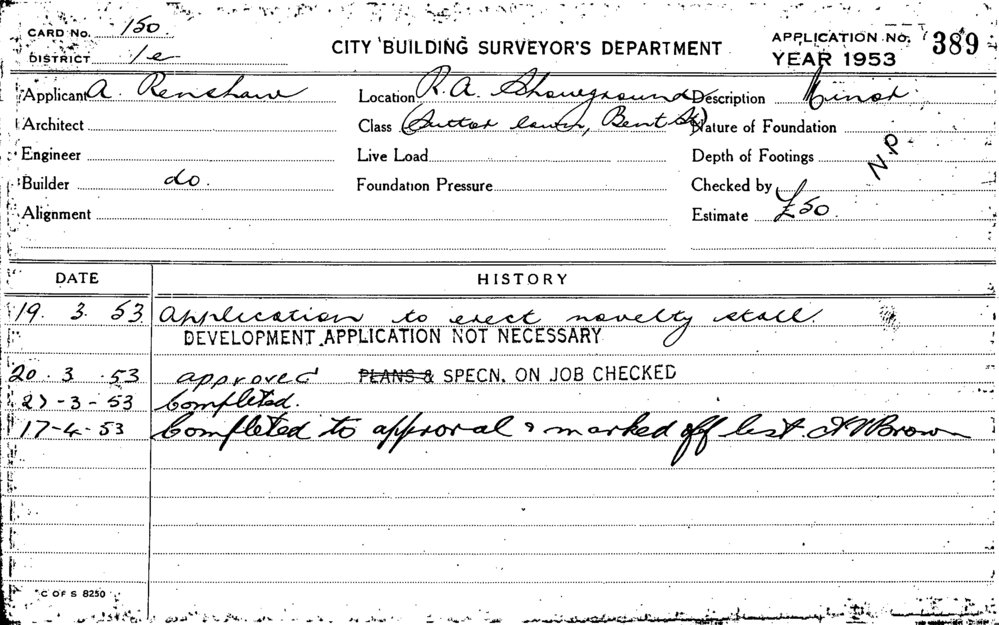 CARD No. 150.
DISTRICT 1e
CITY BUILDING SURVEYOR'S DEPARTMENT
APPLICATION No. 389
YEAR 1953
Applicant A. Renshaw
Location R.A. Showground
Description Minor
Architect
Class (Suttor lawn, Bent St)
Nature of Foundation
Engineer
Live Load
Depth of Footings
N.P
Builder do.
Foundation Pressure
Checked by
Alignment
Estimate £50.
DATE HISTORY
19. 3. 53 Application to erect novelty stall.
DEVELOPMENT APPLICATION NOT NECESSARY
20. 3. 53 approved PLANS & SPECN. ON JOB CHECKED
27-3-53 Completed.
17-4-53 Completed to approval & marked off list. Brown
C OF S 8250